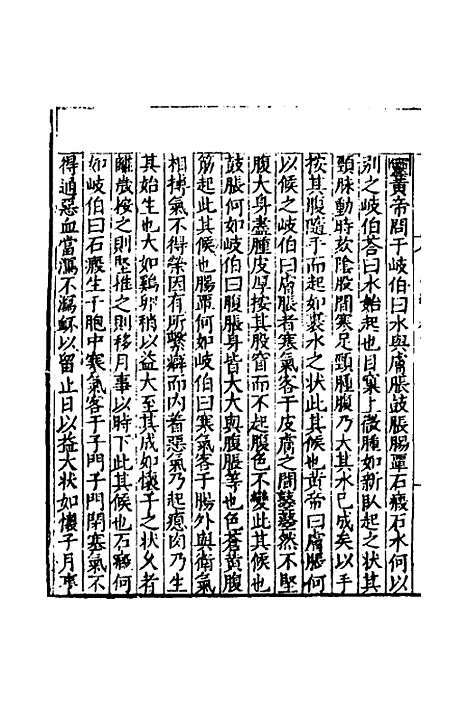 靈黃帝問于岐伯曰水與膚脹鼓脹腸覃石瘕石水何以
別之岐伯荅曰水始起也目窠上微腫如新臥起之狀其
頸脉動時欬陰股間寒足頸腫腹乃大其水已成矣以手
按其腹隨手而起如裹水之狀此其候也黃帝曰膚脹何
以候之岐伯曰膚脹者寒氣客于皮膚之間𪔣𪔣然不堅
腹大身盡腫皮厚按其腹窅而不起腹色不變此其候也
鼓脹何如岐伯曰腹脹身皆大大與膚脹等也色蒼黃腹
筋起此其候也腸覃何如岐伯曰寒氣客于腸外與衛氣
相搏氣不得榮因有所繫癖而內著惡氣乃起瘜肉乃生
其始生也大如鷄卵稍以益大至其成如懷子之狀久者
離歲按之則堅推之則移月事以時下此其候也石瘕何
如岐伯曰石瘕生于胞中寒氣客于子門子門閉塞氣不
得通惡血當瀉不瀉衃以留止日以益大狀如懷子月事